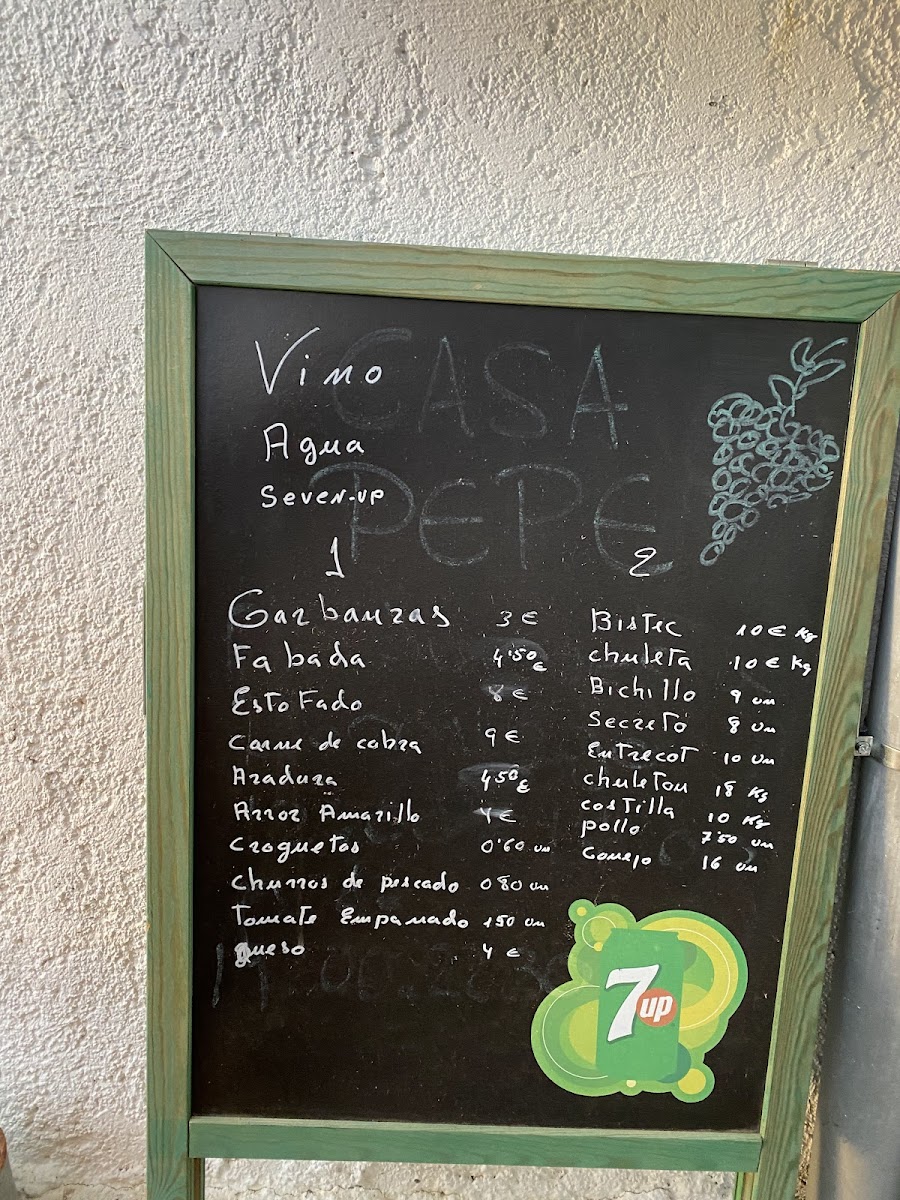 CASA
PEPE
Vino
Agua
Seven-up
1
Garbanzas 3€
Fabada 4'50€
Estofado 8€
Carne de cabra 9€
Asadura 450€
Arroz Amarillo 4€
Croquetas 0'60 un
Churros de pescado 080 un
Tomate Empanado 150 un
queso 4 €
2
Bistec 10€ Kg
chuleta 10€ Kg
Bichillo 9 un
Secreto 8 un
Entrecot 10 un
chuleton 18 Kg
costilla 10 Kg
pollo 7'50 un
Conejo 16 un
7up